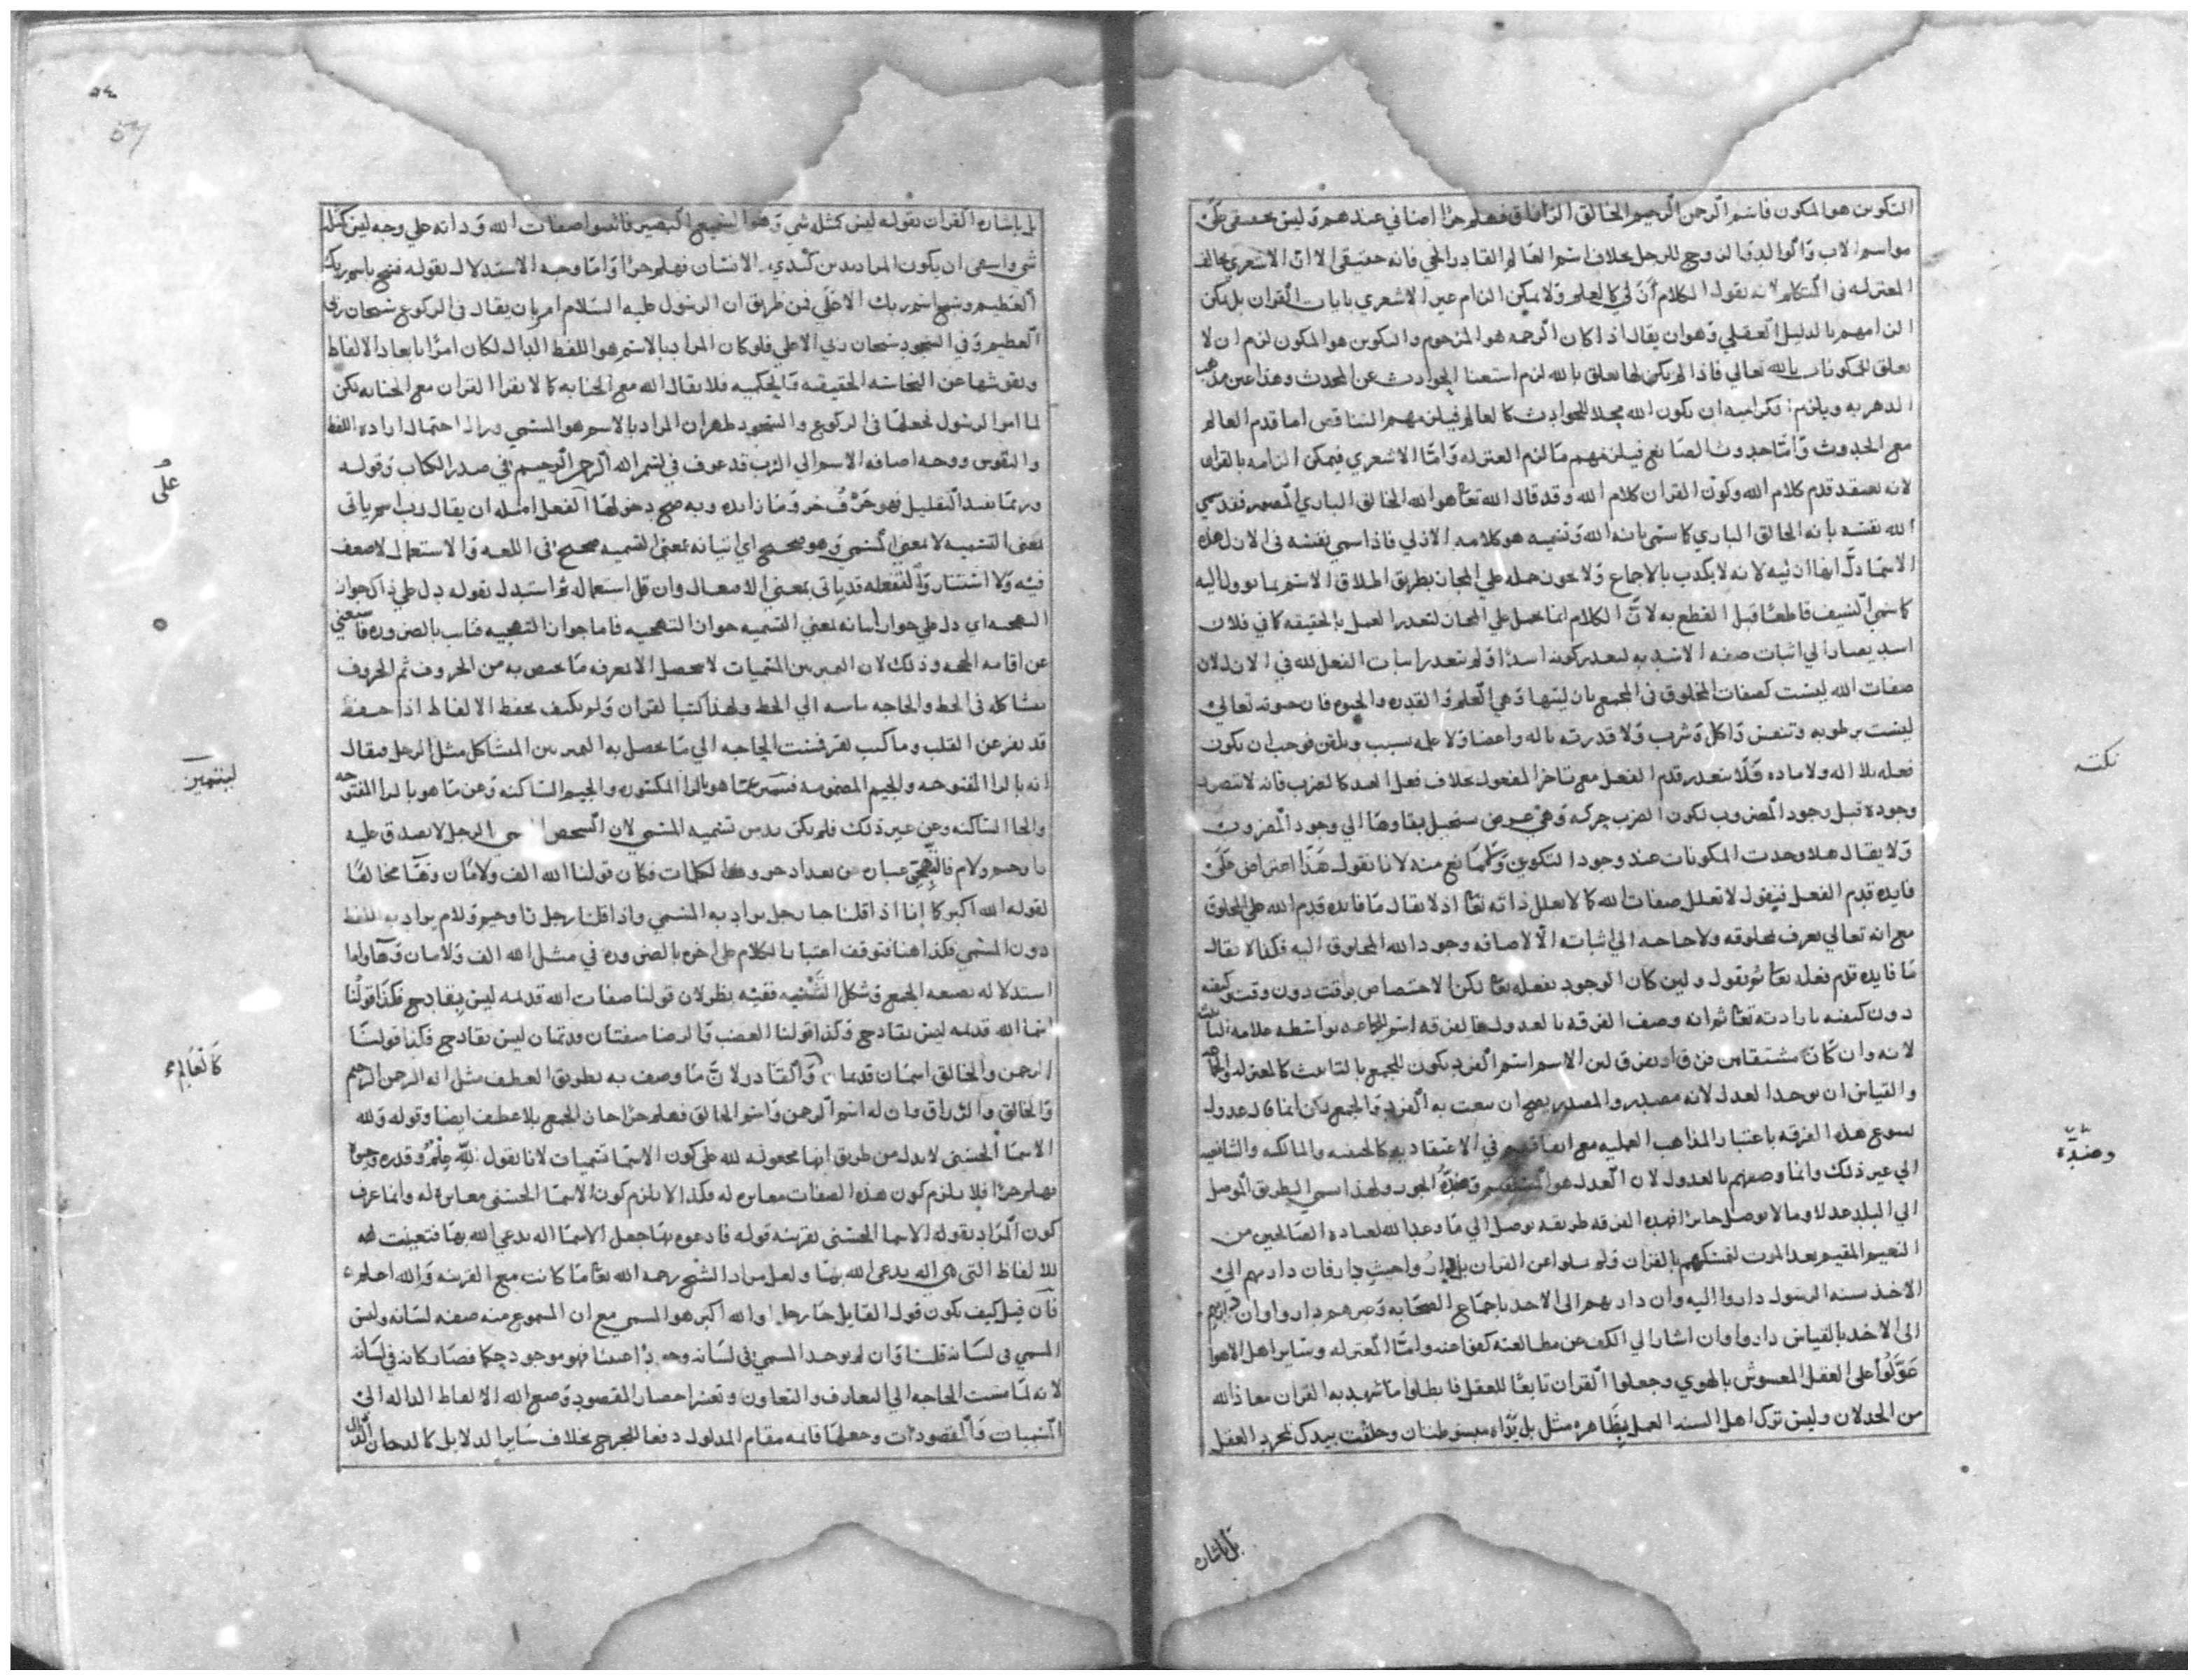 التكوين هو المكون فاسم الرحمن الرحيم الخالق الرزاق فهلم جرا اضافي عندهم وليس بحقيقي
هو اسم الاب والزوج للرجل بخلاف اسم العالم القادر الحي فانه حقيقي الا ان الاشعري يخالف
المعتزله في المتكلم لانه يقول الكلام ازلي كالعلم ولا يمكن الزام غير الاشعري بايات القران بل يمكن
الزامهم بالدليل العقلي وهو ان يقال اذا كان الرحمه هو المرحوم والتكوين هو المكون لزم ان لا
تعلق للمكونات بالله تعالي فاذا لم يكن لها تعلق بالله لزم استغنا الحوادث عن المحدث وهذا عين مذهب
الدهريه ويلزم الكراميه ان يكون الله محلا للحوادث كالعالم فيلزمهم التناقض اما قدم العالم
مع الحدوث واما حدوث الصانع فيلزمهم ما لزم المعتزله واما الاشعري فيمكن الزامه بالقران
لانه يعتقد قدم كلام الله وكون القران كلام الله وقد قال الله تعا هو الله الخالق الباري المصور فقد سمي
الله نفسه بانه الخالق الباري كما سمي بانه الله وتسميه هو كلامه الازلي فاذا سمي نفسه في الازل بهذه
الاسما دل انها ازليه لانه لا يكذب بالاجماع ولا يجوز حمله علي المجاز بطريق اطلاق الاسم بما يوول اليه
كما سمي السيف قاطعا قبل القطع به لان الكلام انما يحمل علي المجاز لتعذر العمل بالحقيقه كما في فلان
اسد يصار الي اثبات صفه الاسد به لتعذر كونه اسدا ولم يتعذر اثبات الفعل لله في الازل لان
صفات الله ليست كصفات المخلوق في المجمع بازليتها وهي العلم والقدره والحيوه فان حيوته تعالي
ليست برطوبه وتنفس واكل وشرب ولا قدرته باله واعضا ولا علمه بسبب وتلقن فوجب ان يكون
فعله بلا اله ولا ماده فلا يتعذر قدم الفعل مع تاخر المفعول بخلاف فعل العبد كالضرب فانه لا يتصور
وجوده قبل وجود المضروب لكون الضرب حركه وهي عرض يستحيل بقاوها الي وجود المضروب
ولا يقال هلا وجدت المكونات عند وجود التكوين منه لانا نقول هذا اعتراض علي
فايده قدم الفعل فيقول لا تعلل صفات الله كما لا تعلل ذاته تعا اذ لا يقال ما فايده قدم الله علي المخلوق
مع انه تعالي يعرف بمخلوقه ولا حاجه الي اثباته الا لاضافه وجود الله المخلوق اليه فكذا لا يقال
ما فايده قدم فعله تعا ثم نقول ولين كان الوجود بفعله تعا لكن الاختصاص بوقت دون وقت وكيفيه
دون كيفيه بارادته تعا ثم انه وصف الفرقه بالعدول
لانه وان كانا مشتقاين من فاد يفرق لين الاسم اسم الفرد يكون للجمع بالتانيث كالمعتزله
والقياس ان يوحد العدل لانه مصدر والمصدر يصح ان ينعت به الفرد والجمع لكن انما قال عدول
لسوع هذه الفرقه باعتبار المذاهب العمليه مع اتفاقهم في الاعتقاديه كالحنفيه والمالكيه والشافعيه
الي غير ذلك وانما وصفهم بالعدول لان العدل هو المستقيم وضده الجور ولهذا سمي الطريق الموصل
الي البلد عدلا وما لا يوصل جايرا فهذه الفرقه طريقه توصل الي ما وعد الله لعباده الصالحين من
النعيم المقيم بعد الموت لتمسكهم بالقران ولم يميلوا عن القران بل داروا حيث دار فان دار بهم الي
الاخذ سنه الرسول داروا اليه وان دار بهم الي الاخذ باجماع الصحابه وغيرهم داروا وان دار بهم
الي الاخذ بالقياس داروا وان اشار الي الكف عن مطالعته كفوا عنه واما المعتزله وساير اهل الاهوا
عولوا علي العقل المغشوش بالهوي وجعلوا القران تابعا للعقل فابطلوا ما شهد به القران معاذ الله
من الخذلان وليس ترك اهل السنه العمل بظاهره مثل بل يداه مبسوطتان وخلقت بيدي لمجرد العقل
نكتة
وضده
بل باشاره
بل باشاره القران بقوله ليس كمثله شي وهو السميع البصير فاثبتوا صفات الله وذاته علي وجه ليس كمثله
شي واستغني ان يكون المراد يدين كيدي الانسان فهلم جرا واما وجه الاستدلال بقوله فسبح باسم ربك
العظيم وسبح اسم ربك الاعلي فمن طريق ان الرسول عليه السلام امر بان يقال في الركوع سبحان ربي
العظيم وفي السجود سبحان ربي الاعلي فلو كان المراد بالاسم هو اللفظ الدال لكان امرا بابعاد الالفاظ
ونقوشها عن النجاسه الحقيقيه والحكميه فلا يقال الله مع الجنابه كما لا يقرا القران مع الجنابه لكن
لما امر الرسول بجعلها في الركوع والسجود ظهر ان المراد بالاسم هو المسمي وزال احتمال اراده اللفظ
والنقوش ووجه اضافه الاسم الي الرب قد عرف في بسم الله الرحمن الرحيم في صدر الكتاب وقوله
وربما يفيد التقليل فهو حرف جر وما زايده وبه صح دخولها الفعل اصله ان يقال رب اسم ياتي
بمعني التسميه لا بمعني المسمي وهو صحيح اي اتيانه بمعني التسميه صحيح في اللغه والاستعمال لا ضعف
فيه ولا استتار والتفعله قد ياتي بمعني الانفعال وان قل استعماله ثم استدل بقوله دل علي ذاك جواز
التهجيه اي دل علي جواز اتيانه بمعني التسميه جواز التهجيه فاما جواز التهجيه فثابت بالضروره فاستغني
عن اقامه الحجه وذلك لان التمييز بين المسميات لا يحصل الا بمعرفه ما يختص به من الحروف ثم الحروف
متشاكله في الخط والحاجه ماسه الي الخط ولهذا كتب القران ولم يكتف بحفظ الالفاظ اذ ما حفظ
قد يفر عن القلب وما كتب لقر فمست الحاجه الي ما يحصل به التمييز بين المتشاكل مثل الرجل فيقال
انه بالرا المفتوحه والجيم المضمومه فتميز عما هو بالرا المكسوره والجيم الساكنه وعن ما هو بالرا المفتوحه
والحا الساكنه وعن غير ذلك فلم يكن بد من تسميه المسمي لان الشخص الرجل لا يصدق عليه
را وجيم ولام فالتهجي عباره عن تعداد حروف الكلمات فكان قولنا الله الف ولامان وها مخالفا
لقوله الله اكبر كما انا اذا قلنا جا رجل يراد به المسمي واذا قلنا رجل را وجيم ولام يراد به اللفظ
دون المسمي فكذا هنا فتوقف اعتبار الكلام علي اخره بالضروره في مثل الله الف ولامان وها واما
استدلاله بصيغه الجمع وشكل التثنيه ففيه نظر لان قولنا صفات الله قديمه ليس بقادح فكذا قولنا
اسما الله قديمه ليس بقادح وكذا قولنا الغضب والرضا صفتان قديمتان ليس بقادح فكذا قولنا
الرحمن والخالق اسمان قديمان والقادر لان ما وصف به بطريق العطف مثل اله الرحمن الرحيم
والخالق والرزاق فان له اسم الرحمن واسم الخالق فهلم جرا جاز الجمع بلا عطف ايضا وقوله ولله
الاسما الحسني لا يدل من طريق انها مجعوله لله علي كون الاسما تسميات لانا نقول لله علم وقدره وحيوه
فهلم جرا فلا يلزم كون هذه الصفات مغايره له فكذا لا يلزم كون الاسما الحسني مغايره له وانما عرف
كون المراد بقوله الاسما الحسني بقرينه قوله فادعوه بها جعل الاسما اله يدعي الله بها فتعينت
للالفاظ التي هي اله يدعي الله بها ولعل مراد الشيخ رحمه الله تعا ما كانت مع القرينه والله اعلم
فان قيل كيف يكون قول القايل جا رجل او الله اكبر هو المسمي مع ان المسموع منه صفه لسانه وليس
المسمي في لسانه قلنا وان لم يوجد المسمي في لسانه وجودا عينا فهو موجود حكما فصار كانه في لسانه
لانه لما مست الحاجه الي التعارف والتعاون وتعسر احضار المقصود وضع الله الالفاظ الداله الي
المسميات والمقصودات وجعلها قايمه مقام المدلول دفعا للحرج بخلاف ساير الدلايل كالدخان الدال
٥٤
علي
ليتميز
كالعالم